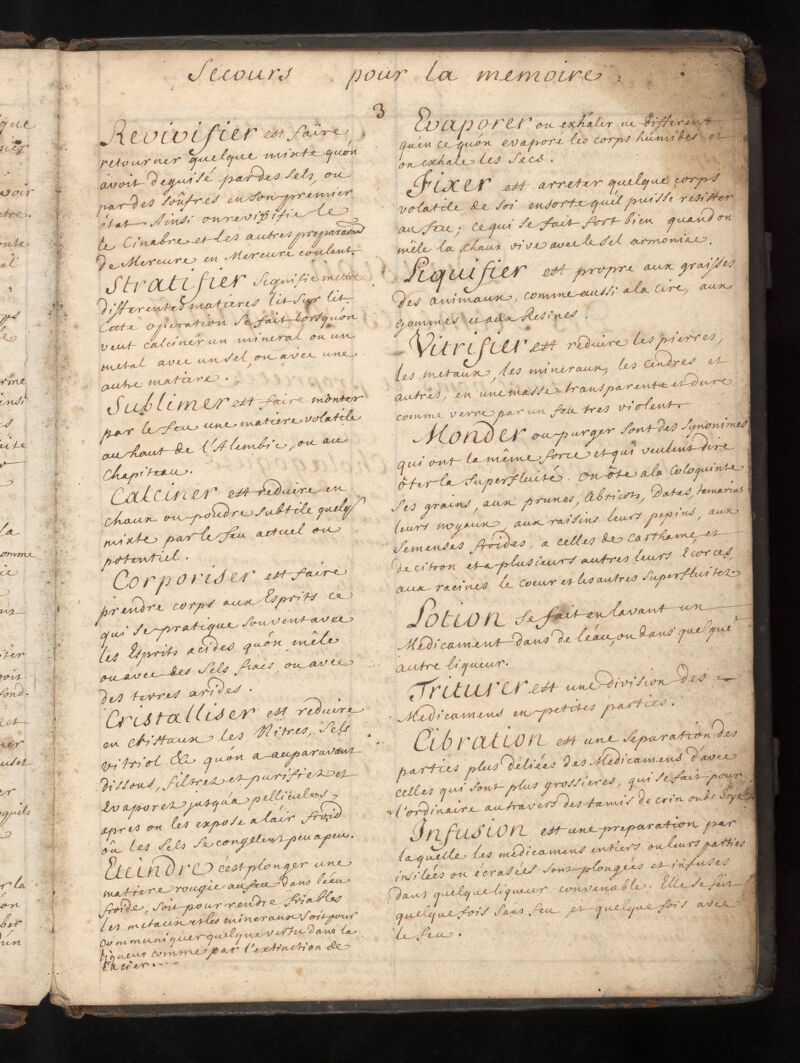 Secours pour la memoire
3
Revivifier est faire
retourner quelque mixte quón
avoit deguisé par des sels, ou
par des soûfres en son premier
état Ainsi on revivifie le
le Cinabre et les autres preparaõns
de Mercure en Mercure coulant.
Stratifier Signifie mettre
differentes matieres lit sur lit.
Cette operation se fait lorsquón
veut calciner un mineral ou un
metal avec un sel, ou avec une
autre matiere.
Sublimer est faire monter
par le feu une matiere volatile
au haut de l'Alembic, ou au
Chapiteau.
Calciner est reduire en
chaux ou poudre subtile quelq
mixte par le feu actuel ou
potentiel.
Corporiser est faire
prendre corps aux Esprits ce
qui se pratique souvent avec
les Esprits acides quón mêle
ou avec des sels fixes, ou avec
des terres arides.
Cristalliser est reduire
en christaux les Nitres, sels
vitriol &c quón a auparavant
dissous, filtrez et purifiez et
Evaporez jusquá pellicules,
apres on les expose a lair froid
oû les sels se congelent peu a peu.
Eteindre cést plonger une
matiere rougie au feu dans léau
froide, soit pour rendre friables
les metaux et les mineraux soit pour
communiquer quelque virtu dans la
liqueur comme par l'extinction de
l'acier.
Evaporer ou exhaler ne different
quen ce quón evapore les corps humides et
on exhale les secs.
Fixer est arreter quelque corps
volatile de soi en sorte quil puisse resister
au feu; ce qui se fait fort bien quand on
mêle la chaux vive avec le sel armoniac.
Liquifier est propre aux graisses
des animaux, comme aussi a la cire, aux
gommes et aux Resines.
Vitrifier est reduire les pierres,
les metaux, les mineraux, les cendres et
autres, en une masse transparente et dure
comme verre par un feu tres violent.
Monder ou purger sont des synonimes
qui ont la même force et qui veulent dire
ôter la superfluité. on ôte a la Coloquinte
ses grains, aux prunes, Abricots, Dates, tamarins
leurs noyaux, aux raisins leurs pepins, aux
semenses froides, a celles de Carthame, et
de citron et a plusieurs autres leurs Ecorces,
aux racines le coeur et les autres superfluitez.
Lotion se fait en lavant un
Médicament dans de léau, ou dans quelque
autre liqueur.
Triturer est une division des
Medicamens en petites parties.
Cibration est une separation des
parties plus déliées des Medicamens d'avec
celles qui sont plus grossieres, qui se fait pour
l'ordinaire au travers des tamis de crin ou de Soye.
Infusion est une preparation par
laquelle les medicamens entiers ou leurs parties
insilées ou écrasées sont plongées et infuses
dans quelque liqueur convenable. Elle se fait
quelque fois sans feu et quelque fois avec
le feu.